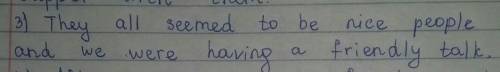 3) They all seemed to be nice people
and we were having a friendly talk.